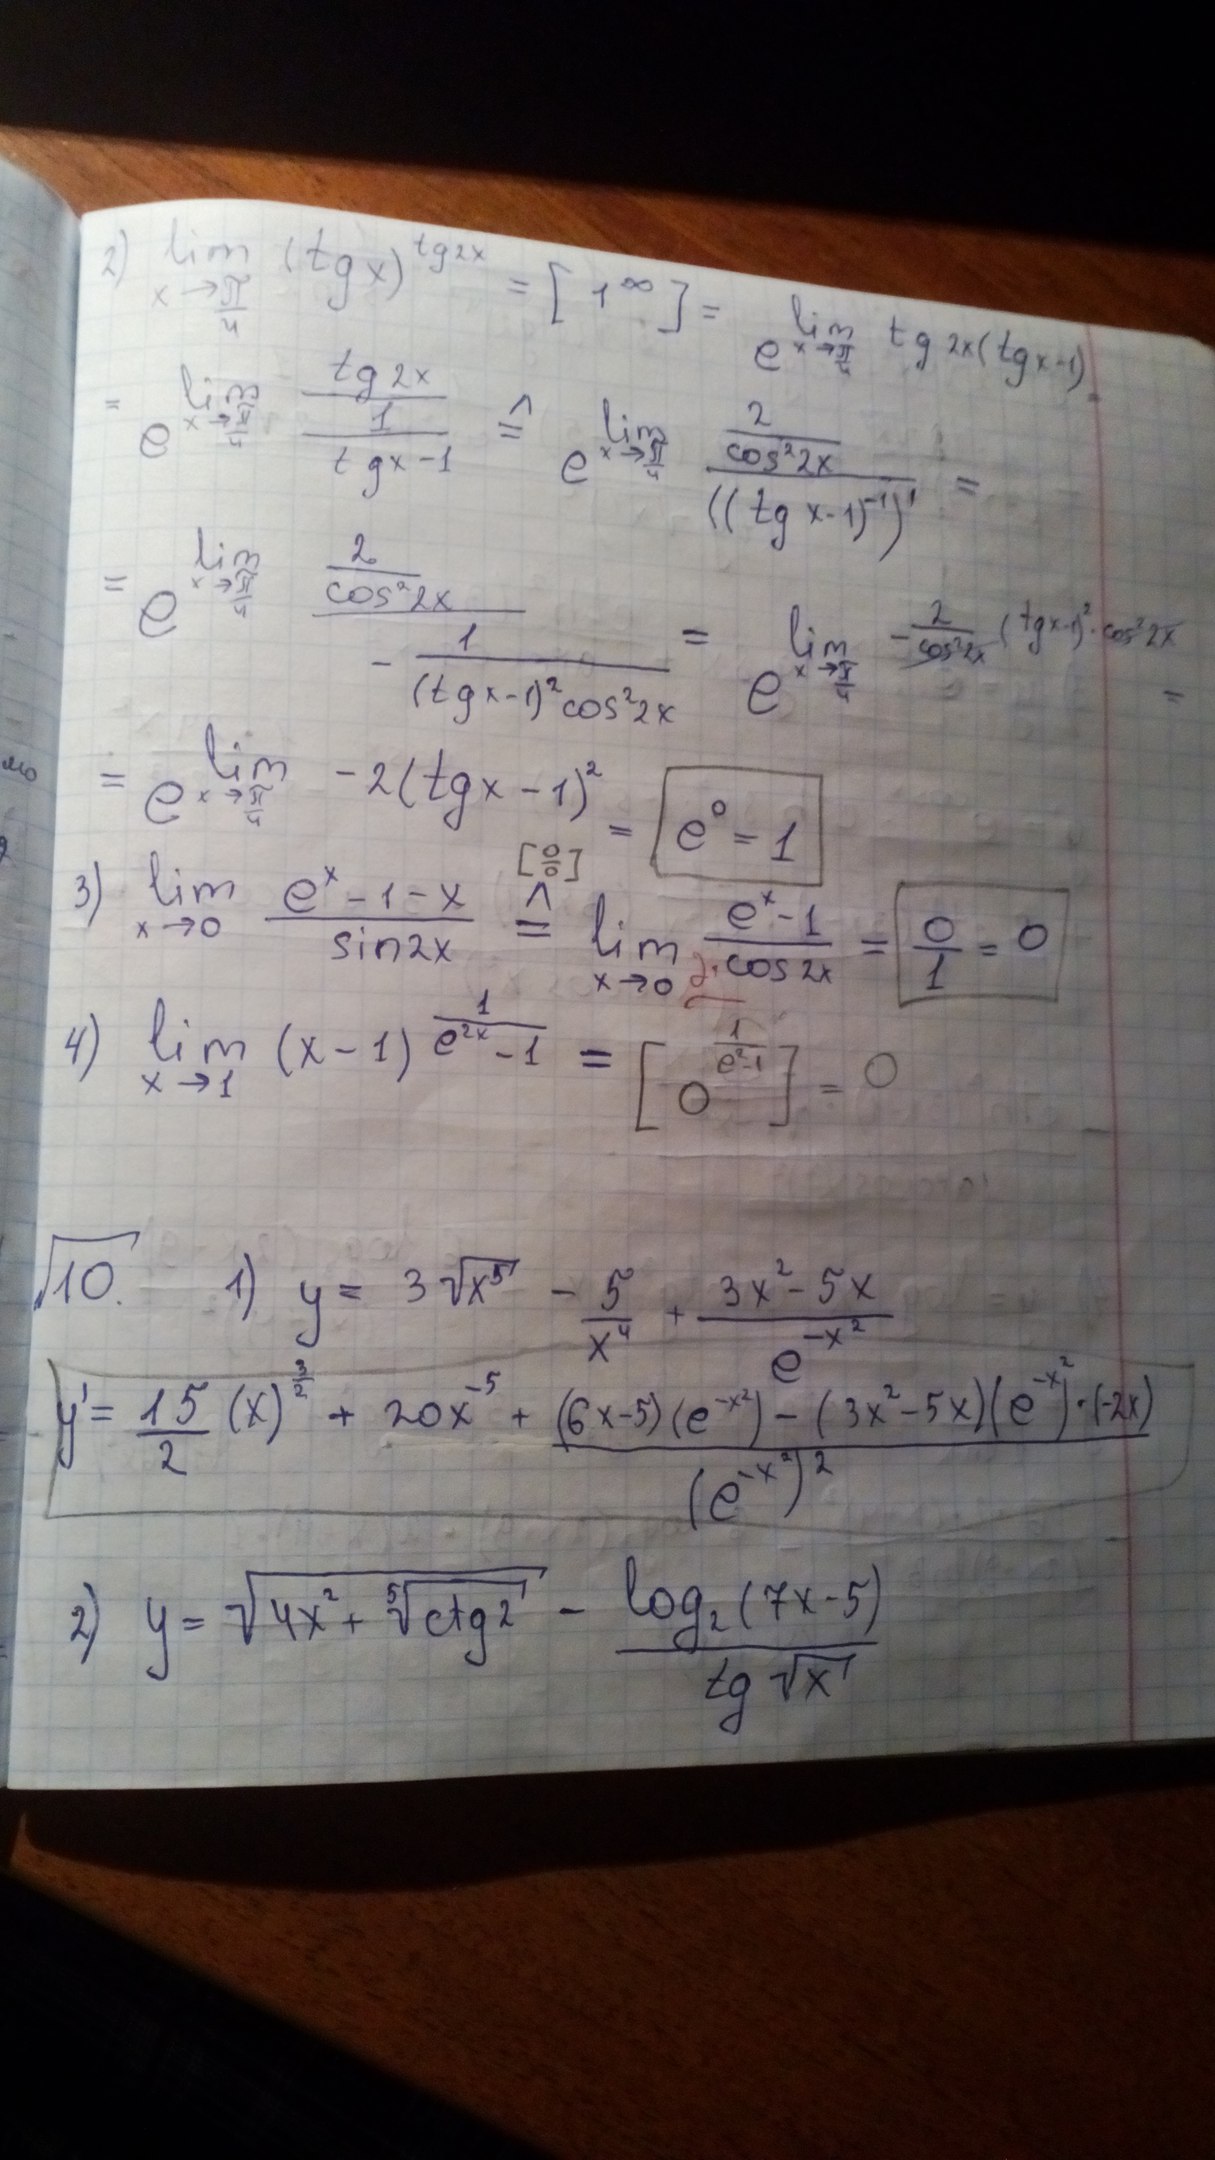 2) lim x→π/4 (tg x)^tg2x = [1^∞] = e^lim x→π/4 tg 2x(tgx-1) =
= e^lim x→π/4 tg2x / (1/(tgx-1)) ≙ e^lim x→π/4 (2/cos²2x) / ((tg x-1)^-1)' =
= e^lim x→π/4 (2/cos²2x) / (-1/((tgx-1)²cos²2x)) = e^lim x→π/4 -2/cos²2x (tgx-1)²·cos²2x =
= e^lim x→π/4 -2(tgx-1)² = e^0 = 1
3) lim x→0 (e^x-1-x)/sin2x ≙ [0/0] lim x→0 (e^x-1)/(2·cos2x) = 0/1 = 0
4) lim x→1 (x-1)^(1/(e^2x-1)) = [0^(1/(e²-1))] = 0
√10. 1) y = 3√x^5 - 5/x^4 + (3x²-5x)/e^-x²
y' = 15/2 (x)^3/2 + 20x^-5 + ((6x-5)(e^-x²) - (3x²-5x)(e^-x²)·(-2x))/(e^-x²)²
2) y = √(4x² + ⁵√ctg2) - log₂(7x-5)/tg√x